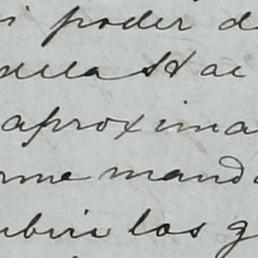 i poder d
della St ac
aproxima
rme mand
ubrir los g